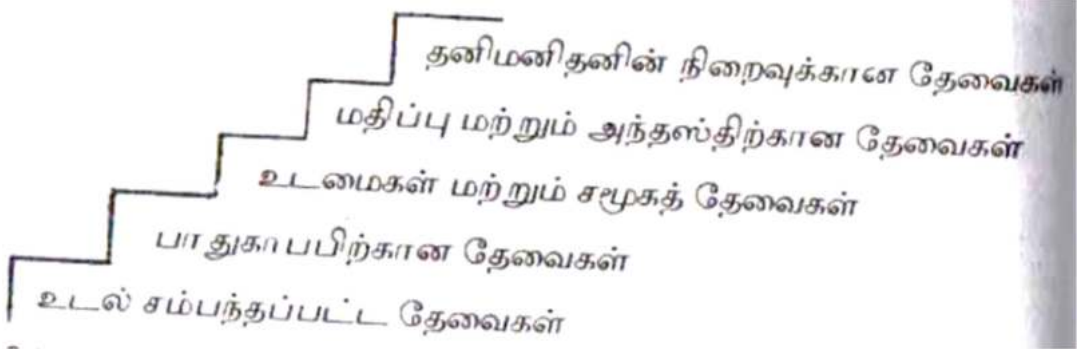 தனிமனிதனின் நிறைவுக்கான தேவைகள்
மதிப்பு மற்றும் அந்தஸ்திற்கான தேவைகள்
உடமைகள் மற்றும் சமூகத் தேவைகள்
பாதுகாபபிற்கான தேவைகள்
உடல் சம்பந்தப்பட்ட தேவைகள்